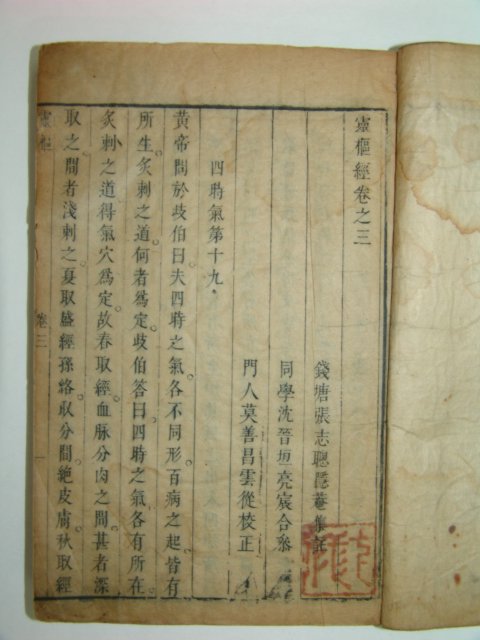 靈樞經卷之三
錢塘張志聰隱菴集註
同學沈晉垣亮宸合參
門人莫善昌雲從校正
四時氣第十九
黃帝問於歧伯曰夫四時之氣各不同形百病之起皆有
所生炙刺之道何者爲定歧伯答曰四時之氣各有所在
炙刺之道得氣穴爲定故春取經血脉分肉之間甚者深
取之間者淺刺之夏取盛經孫絡取分間絶皮膚秋取經
靈樞
卷三
一